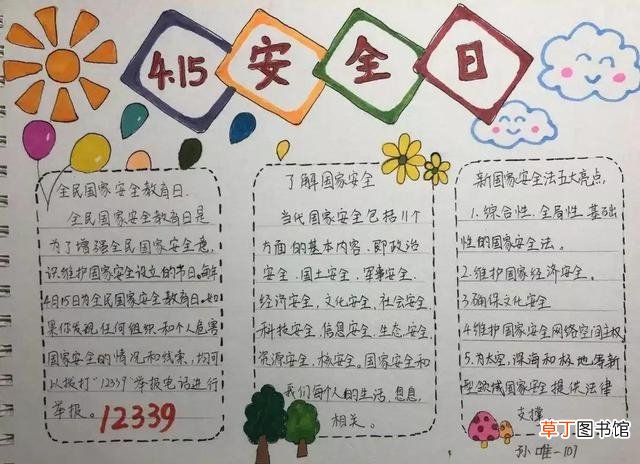 4.15 安全日
全民国家安全教育日.
全民国家安全教育日是
为了增强全民国家安全意
识维护国家安全设立的节日。每年
4月15日为全民国家安全教育日。如
果你发现任何组织和个人危害
国家安全的情况和线索,均可
以拨打"12339"举报电话进行
举报。
12339
了解国家安全
当代国家安全包括11个
方面的基本内容.即政治
安全.国土安全.军事安全.
经济安全,文化安全,社会安全
科技安全,信息安全.生态安全
资源安全,核安全。国家安全和
我们每个人的生活.息息
相关。
新国家安全法五大亮点,
1.综合性.全局性.基础
性的国家安全法。
2.维护国家经济安全。
3确保文化安全
4维护国家安全网络空间主权
5.为太空,深海和极地等新
型领域国家安全提供法律
支撑
孙唯一107
草丁图书馆